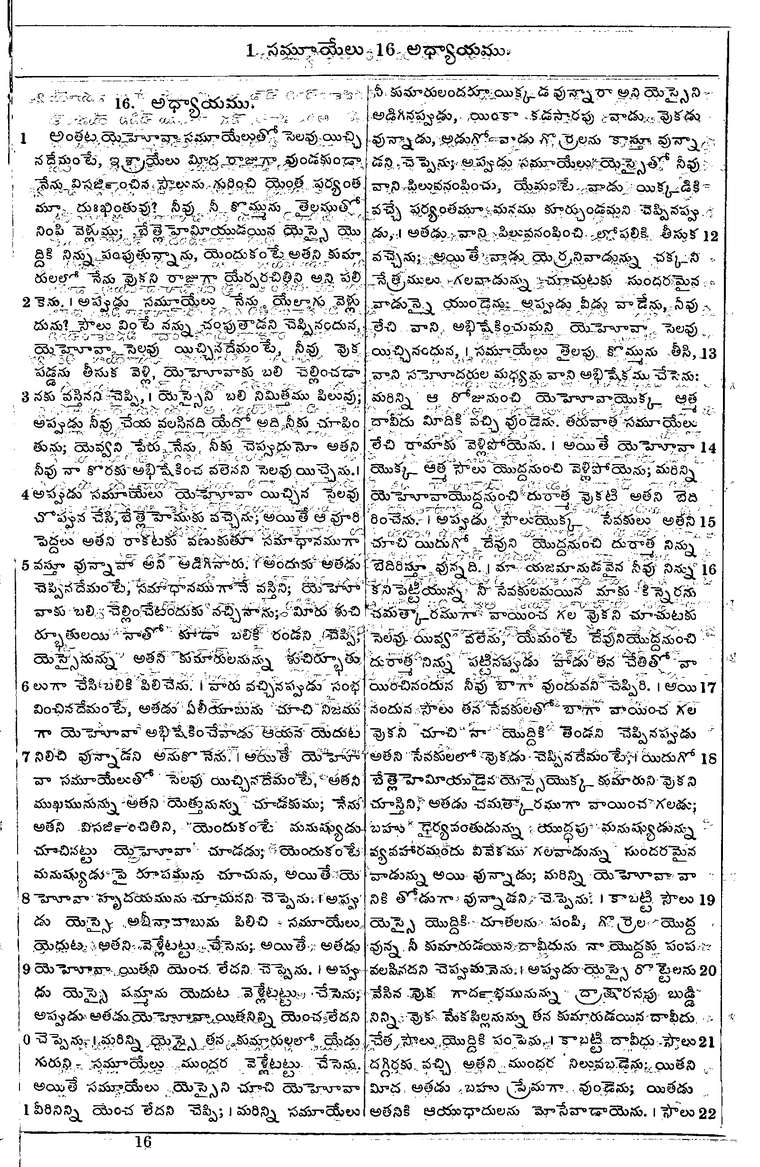 1 సమూయేలు 16 అధ్యాయము.
16. అధ్యాయము.
1 అంతట యెహోవా సమూయేలుతో సెలవు యిచ్చి
నదేమంటే, ఇశ్రాయేలు మీద రాజుగా వుండకుండా
నేను విసజికాంచిన సౌలును గురించి యెంత పర్యంత
మూ దుఃఖింతువు? నీవు నీ కొమ్మును తైలముతో
నింపి వెళ్లుము; బేత్లెహెమీయుడయిన యెస్సై యొ
ద్దికి నిన్ను పంపుతున్నాను, యెందుకంటే అతని కుమా
రులలో నేను వొకని రాజుగా యేర్పరచితిని అని పలి
2 కెను. । అప్పుడు సమూయేలు నేను యేలాగు వెళ్లు
దును? సౌలు వింటే నన్ను చంపుతాడని చెప్పినందున,
యెహోవా సెలవు యిచ్చినదేమంటే, నీవు వొక
పడ్డను తీసుక వెళ్లి, యెహోవాకు బలి చెల్లించడా
3 నకు వస్తినని చెప్పి, । యెస్సైని బలి నిమిత్తము పిలువు;
అప్పుడు నీవు చేయ వలసినది యేదో అది నీకు చూపిం
తును; యెవ్వని పేరు నేను నీకు చెప్పుదునో అతని
నీవు నా కొరకు అభిషేకించ వలెనని సెలవు యిచ్చెను. ।
4 అప్పుడు సమూయేలు యెహోవా యిచ్చిన సెలవు
చొప్పున చేసి, బేత్లెహెముకు వచ్చెను; అయితే ఆ వూరి
పెద్దలు అతని రాకటకు వణుకుతూ సమాధానముగా
5 వస్తూ వున్నావా అని అడిగినారు. । అందుకు అతడు
చెప్పినదేమంటే, సమాధానముగానే వస్తిని; యెహో
వాకు బలి చెల్లించేటందుకు వచ్చినాను; మీరు శుచి
ర్భూతులయి నాతో కూడా బలికి రండని చెప్పి;
యెస్సైనున్ను అతని కుమారులనున్ను శుచిర్భూతు
6 లుగా చేసి బలికి పిలిచెను. । వారు వచ్చినప్పుడు సంభ
వించినదేమంటే, అతడు ఏలీయాబును చూచి నిజము
గా యెహోవా అభిషేకించేవాడు ఆయన యెదుట
7 నిలిచి వున్నాడని అనుకొనెను. । అయితే యెహో
వా సమూయేలుతో సెలవు యిచ్చినదేమంటే, అతని
ముఖమునున్ను అతని యెత్తునున్ను చూడకుము; నేను
అతని విసజికాంచితిని, యెందుకంటే మనుష్యుడు
చూచినట్టు యెహోవా చూడడు; యెందుకంటే
మనుష్యుడు పై రూపమును చూచును, అయితే యె
8 హోవా హృదయమును చూచునని చెప్పెను. । అప్పు
డు యెస్సై అబీనాదాబును పిలిచి సమూయేలు
యెదుట అతని వెళ్లేటట్టు చేసెను; అయితే అతడు
9 యెహోవా యితని యెంచ లేదని చెప్పెను. । అప్పు
డు యెస్సై షమ్మాను యెదుట వెళ్లేటట్టు చేసెను;
అప్పుడు అతడు యెహోవా యితనిన్ని యెంచ లేదని
0 చెప్పెను. । మరిన్ని యెస్సై తన కుమారులలో యేడు
గురుని సమూయేలు ముందర వెళ్లేటట్టు చేసెను.
అయితే సమూయేలు యెస్సైని చూచి యెహోవా
1 వీరినిన్ని యెంచ లేదని చెప్పి; । మరిన్ని సమూయేలు
16
నీ కుమారులందరూ యిక్కడ వున్నారా అని యెస్సైని
అడిగినప్పుడు, యింకా కడసారపు వాడు వొకడు
వున్నాడు, అదుగో వాడు గొర్రెలను కాస్తూ వున్నా
డని చెప్పెను; అప్పుడు సమూయేలు యెస్సైతో నీవు
వాని పిలువనంపించు, యేమంటే వాడు యిక్కడికి
వచ్చే పర్యంతమూ మనము కూర్చుండమని చెప్పినప్పు
డు, । అతడు వాని పిలువనంపించి లోపలికి తీసుక 12
వచ్చెను; అయితే వాడు యెర్రనివాడున్ను చక్కని
నేత్రములు గలవాడున్ను చూచుటకు సుందరమైన
వాడున్నై యుండెను; అప్పుడు వీడు వాడేను, నీవు
లేచి వాని అభిషేకించుమని యెహోవా సెలవు
యిచ్చినందున, । సమూయేలు తైలపు కొమ్మును తీసి, 13
వాని సహోదరుల మధ్యను వాని అభిషేకము చేసెను:
మరిన్ని ఆ రోజునుంచి యెహోవాయొక్క ఆత్మ
దావీదు మీదికి వచ్చి వుండెను. తరువాత సమూయేలు
లేచి రామాకు వెళ్లిపోయెను. । అయితే యెహోవా 14
యొక్క ఆత్మ సౌలు యొద్దనుంచి వెళ్లిపోయెను; మరిన్ని
యెహోవాయొద్దనుంచి దురాత్మ వొకటి అతని బెది
రించెను. । అప్పుడు సౌలుయొక్క సేవకులు అతని 15
చూచి యిదుగో దేవుని యొద్దనుంచి దురాత్మ నిన్ను
బెదిరిస్తూ వున్నది. । మా యజమానుడవైన నీవు నిన్ను 16
కనిపెట్టియున్న నీ సేవకులమయిన మాకు కిన్నెరను
చమత్కారముగా వాయించ గల వొకని చూచుటకు
సెలవు యివ్వ వలెను, యేమంటే దేవునియొద్దనుంచి
దురాత్మ నిన్ను పట్టినప్పుడు వాడు తన చేతితో వా
యించినందున నీవు బాగా వుందువని చెప్పిరి. । అయి 17
నందున సౌలు తన సేవకులతో బాగా వాయించ గల
వొకని చూచి నా యొద్దికి తెండని చెప్పినప్పుడు
అతని సేవకులలో వొకడు చెప్పినదేమంటే, । యిదుగో 18
బేత్లెహెమీయుడైన యెస్సైయొక్క కుమారుని వొకని
చూస్తిని, అతడు చమత్కారముగా వాయించ గలడు;
బహు ధైర్యవంతుడున్ను యుద్ధపు మనుష్యుడున్ను
వ్యవహారమందు వివేకము గలవాడున్ను సుందరమైన
వాడున్ను అయి వున్నాడు; మరిన్ని యెహోవా వా
నికి తోడుగా వున్నాడని చెప్పెను; । కాబట్టి సౌలు 19
యెస్సై యొద్దికి దూతలను సంపి, గొర్రెల యొద్ద
వున్న నీ కుమారుడయిన దావీదును నా యొద్దకు పంప
వలసినదని చెప్పుమనెను. । అప్పుడు యెస్సై రొట్టెలను 20
వేసిన వొక గాదకాభమునున్ను ద్రాక్షారసపు బుడ్డి
నిన్ని వొక మేకపిల్లనున్ను తన కుమారుడయిన దావీదు
చేత సౌలు యొద్దికి పంపెను. । కాబట్టి దావీదు సౌలు 21
దగ్గిరకు వచ్చి అతని ముందర నిలువబడెను; యితని
మీద అతడు బహు ప్రేమగా వుండెను; యితడు
అతనికి ఆయుధాదులను మోసేవాడాయెను. । సౌలు 22